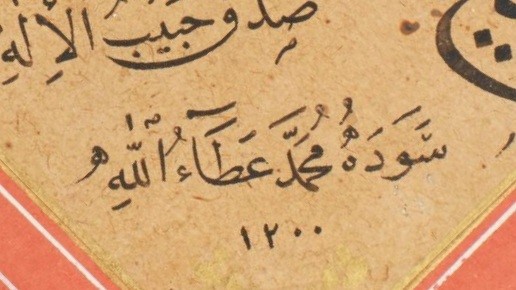 صدق حبيب الإله
سَوَّدَهُ مُحَمَّد عَطَاءُ اللّٰهِ
١٢٠٠